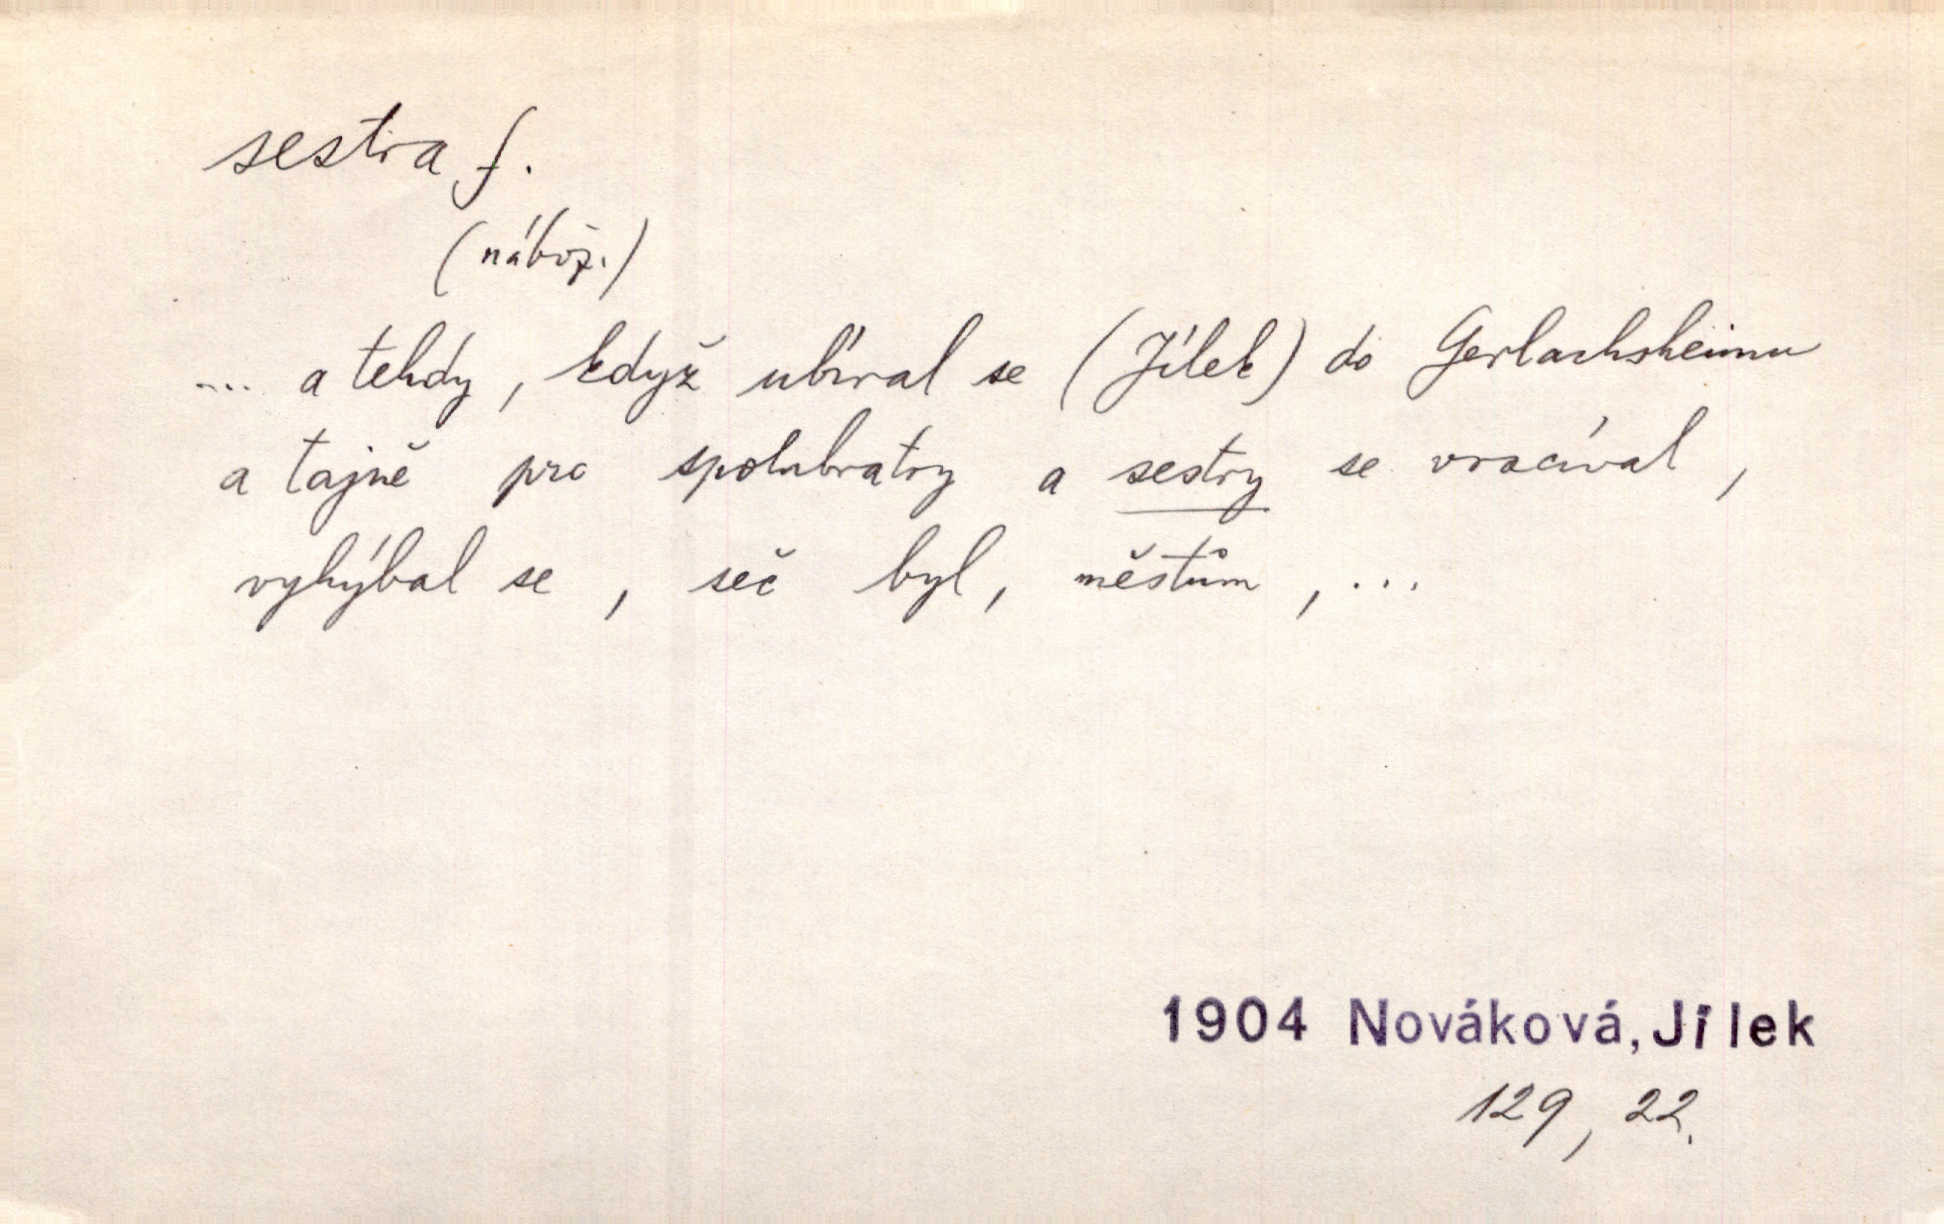 sestra f.
(nábož.)
... a tehdy, když ubíral se (Jílek) do Gerlachsheimu
a tajně pro spolubratry a sestry se vracíval,
vyhýbal se, seč byl, městům, ...
1904 Nováková, Jílek
129, 22.